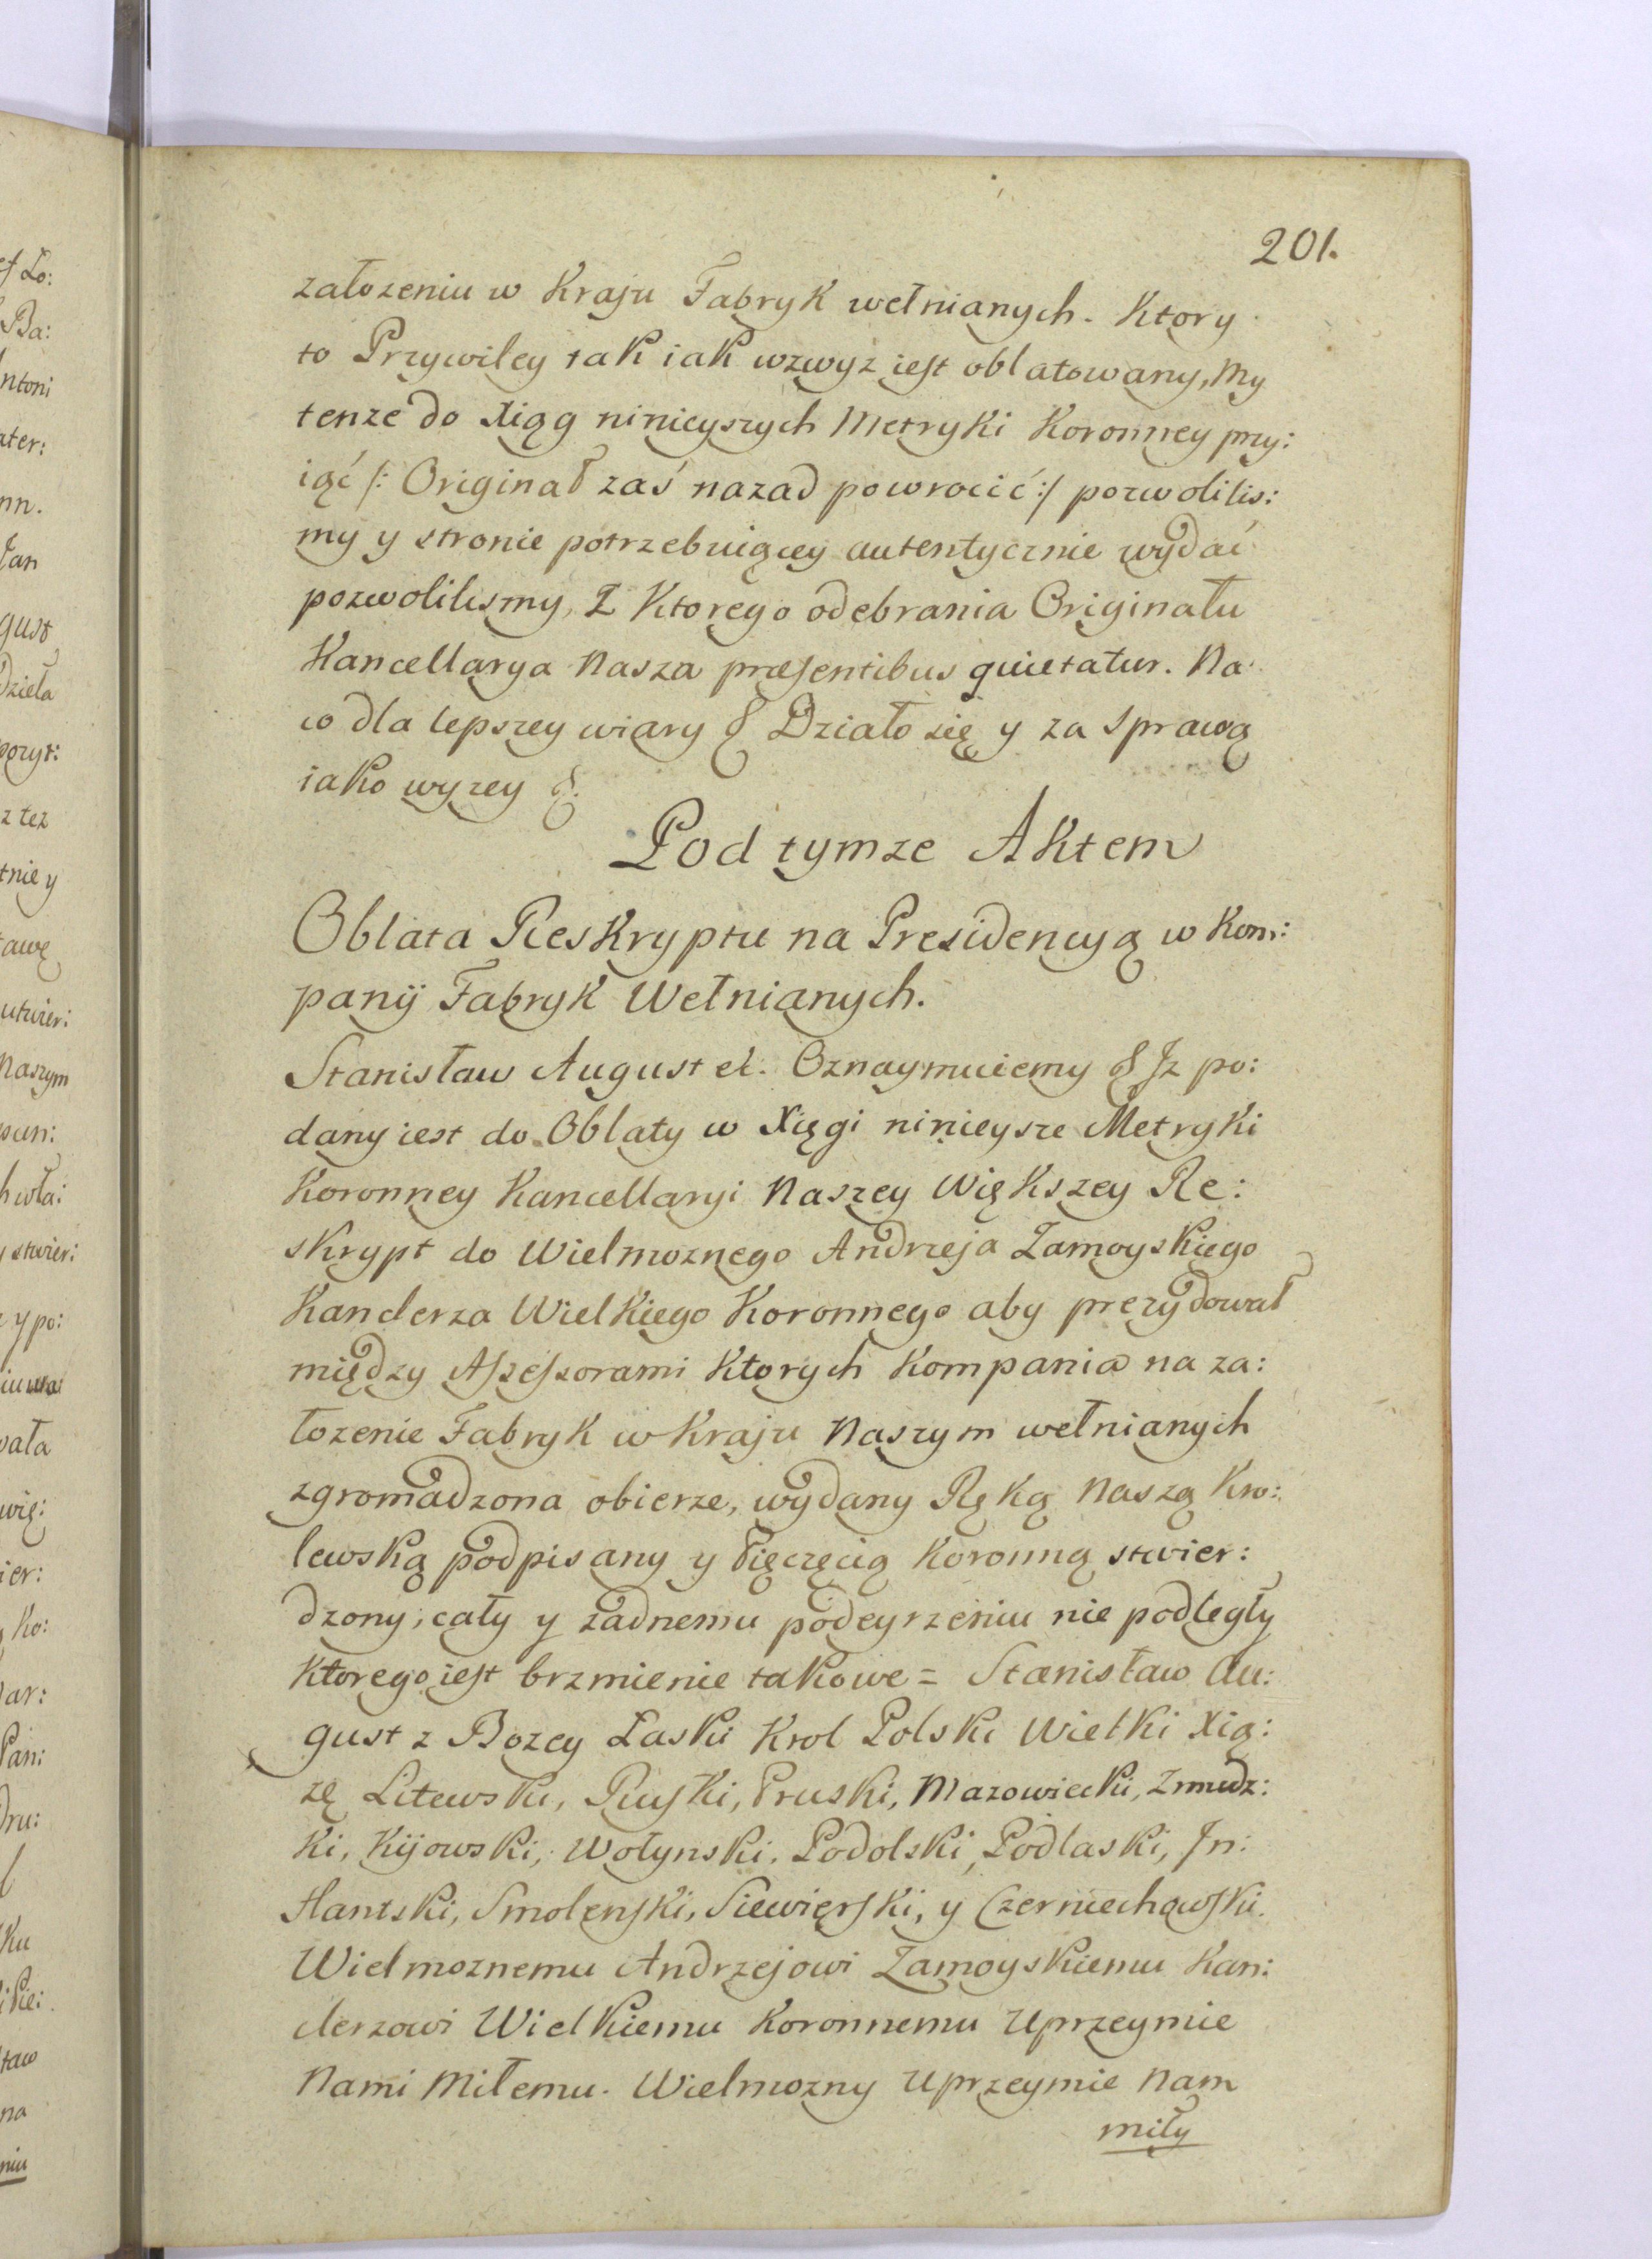 201.
załozeniu w Kraju Fabryk wełnianych. Ktory
to Przywiley tak iak wzwyz iest oblatowany, My
tenze do Xiąg ninieyszych Metryki Koronney przy:
iąć /: Originał zaś nazad powrocić :/ pozwolilis:
my y stronie potrzebuiącey autentycznie wydać
pozwolilismy, Z Ktorego odebrania Originału
Kancellarya Nasza præsentibus quietatur. Na
co dla lepszey wiary & Działo się y za sprawą
iako wyzey &.
Pod tymze Aktem
Oblata Reskryptu na Presidencyą w Kom:
panij Fabryk Wełnianych.
Stanisław August et. Oznaymuiemy & Jz po:
dany iest do Oblaty w Xięgi ninieysze Metryki
Koronney Kancellaryi Naszey Większey Re:
skrypt do Wielmoznego Andrzeja Zamoyskiego
Kanclerza Wielkiego Koronnego aby prezydował
między Assessorami Ktorych Kompania na za:
łozenie Fabryk w Kraju Naszym wełnianych
zgromadzona obierze, wydany Ręką Naszą Kro:
lewską podpisany y Pięczęcią Koronną stwier:
dzony, cały y zadnemu podeyrzeniu nie podległy
Ktorego iest brzmienie takowe = Stanisław Au:
gust z Bozey Laski Krol Polski Wielki Xią:
zę Litewski, Ruski, Pruski, Mazowiecki, Zmudz:
ki, Kijowski, Wołynski, Podolski, Podlaski, Jn:
flantski, Smolenski, Siewierski, y Czerniechowski.
Wielmoznemu Andrzejowi Zamoyskiemu Kan:
clerzowi Wielkiemu Koronnemu Uprzeymie
Nami Miłemu. Wielmozny Uprzeymie Nam
miły